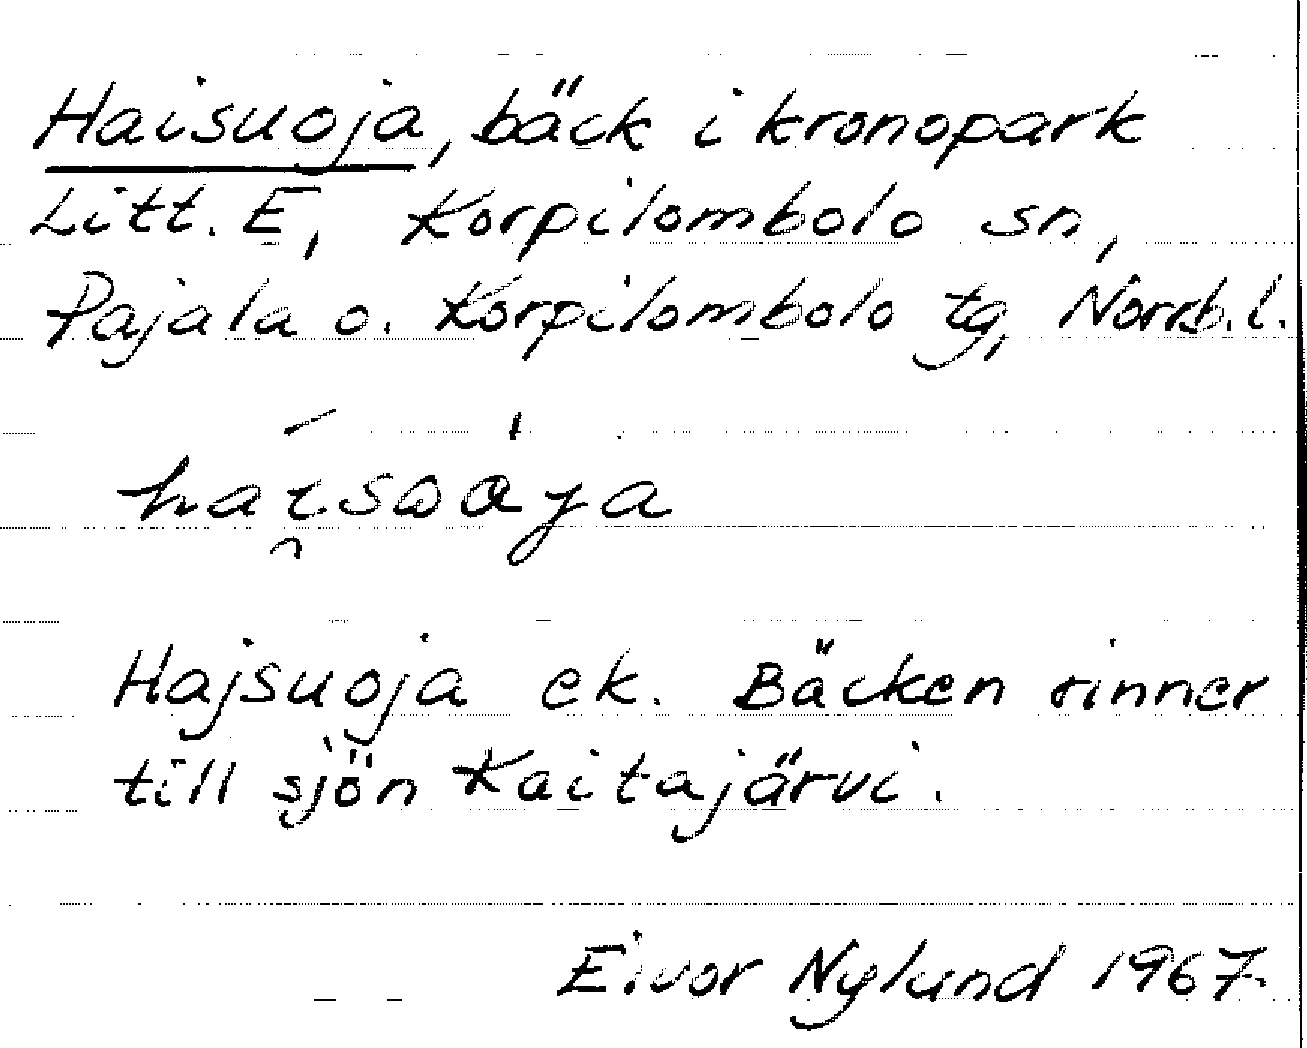 Haisuoja, bäck i kronopark
Litt. E, Korpilombolo sn,
Pajala o. Korpilombolo tg, Norrb. l.
Hajsuoja ek. Bäcken rinner
till sjön Kaitajärvi.
Eivor Nylund 1967.